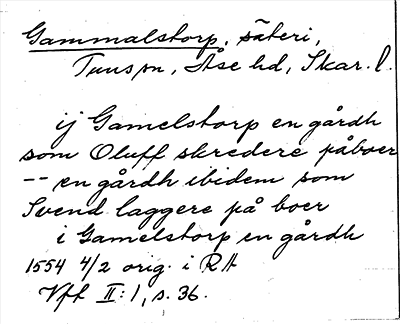 Gammalstorp, säteri,
Tun sn, Åse hd, Skar. l.
ij Gamelstorp en gårdh
som Oluff skredere påboer
-- en gårdh ibidem som
Svend laggere på boer
i Gamelstorp en gårdh
1554 4/2 orig. i RA
Vff II:1, s. 36.